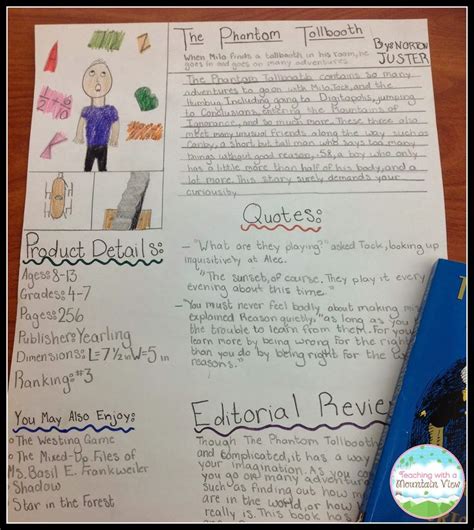 The Phantom Tollbooth
When Milo finds a tollbooth in his room, he
goes in and goes on many adventures
By: NORTON
JUSTER
The Phantom Tollbooth contains so many
adventures to go on with Milo, Tock, and the
Humbug. Including going to Digitopolis, jumping
to Conclusions, entering the Mountains of
Ignorance, and so much more. These three also
meet many unusual friends along the way such as
Canby, a short but tall man who says too many
things without good reason, .58, a boy who only
has a little more than half of his body, and a
lot more. This story surely demands your
curiousity.
Quotes:
- "What are they playing?" asked Tock, looking up
inquisitively at Alec.
"The sunset, of course. They play it every
evening about this time."
- "You must never feel badly about making mis
explained Reason quietly, "as long as you
the trouble to learn from them. For you
learn more by being wrong for the right
than you do by being right for the
Product Details:
Ages: 8-13
Grades: 4-7
Pages: 256
Publisher: Yearling
Dimensions: L=7 1/2 in W=5 in
Ranking: #3
You May Also Enjoy:
The Westing Game
The Mixed-Up Files of
Ms. Basil E. Frankweiler
Shadow
Star in the Forest
Editorial Review
Though The Phantom Tollbooth
and complicated, it has a way
your imagination. As you co
you go on many adventures
such as finding out how man
are in the world, and how
1/2 + 6/10
T
Teaching with a
Mountain View